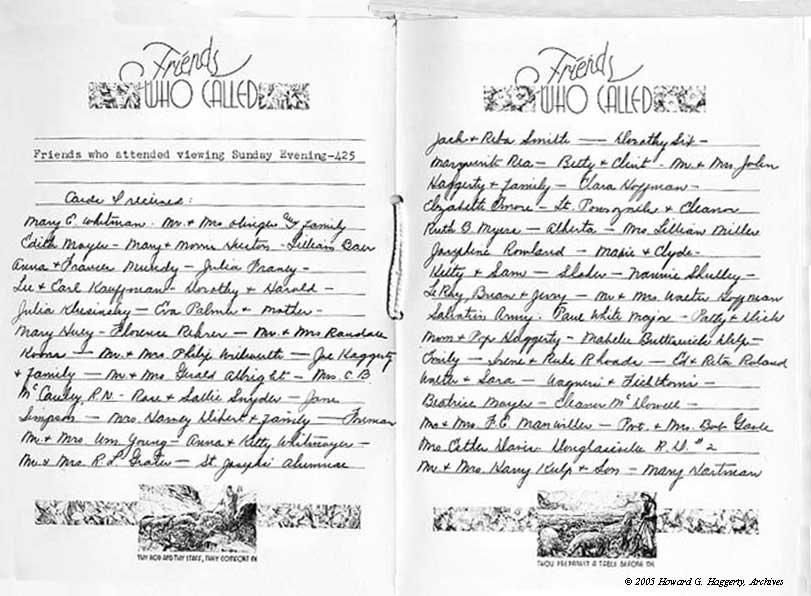 Friends
WHO CALLED
Friends who attended viewing Sunday Evening-425
Cards I recieved:
Mary E. Whitman - Mr. & Mrs. & Family
Edith Moyer - Mary & Morris - Lillian Baer
Anna & Frances Mundy - Julia Franey -
Lee & Carl Kauffman - Dorothy & Harold -
Julia - Eva Palmer & Mother -
Mary Huey - Florence Rehrer - Mr. & Mrs Randall
Koons - Mr. & Mrs. Philip - Joe Haggerty
& Family - Mr & Mrs. Gerald Albright - Mrs. C. B.
McCauley, R.N. - Rose & Sallie Snyder - Jane
Simpson - Mrs. Harvey & Family - Freeman
Mr. & Mrs. Wm. Young - Anna & Kitty Whitmoyer -
Mr. & Mrs. R. L. Grater - St Josephs Alumnae
THY ROD AND THY STAFF, THEY COMFORT ME
Friends
WHO CALLED
Jack & Reba Smith - Dorothy Six -
Marguerite Rea - Betty & Clint - Mr. & Mrs. John
Haggerty & Family - Clara Hoffman -
Elizabeth - St. & Eleanor
Ruth B. Myers - Alberta - Mrs. Lillian Miller
Josephine Rowland - Marie & Clyde -
& Sam - - Nannie
LeRoy, Brian & Jerry - Mr & Mrs. Walter Hoffman
Salvation Army. Paul White Major - Patty & Dick
Mom & Pop Haggerty - Mahele
Emily - Irene & Rube Rhoads - Ed & Rita Roland
Walter & Sara - &
Beatrice Moyer - Eleanor McDowell -
Mr & Mrs. F. E. Manwiller - & Mrs. Bob
Mrs. Esther Davis - Douglassville R.D. #2
Mr & Mrs. Harry Kulp & Son - Mary Hartman
THOU PREPAREST A TABLE BEFORE ME
© 2005 Howard G. Haggerty, Archives